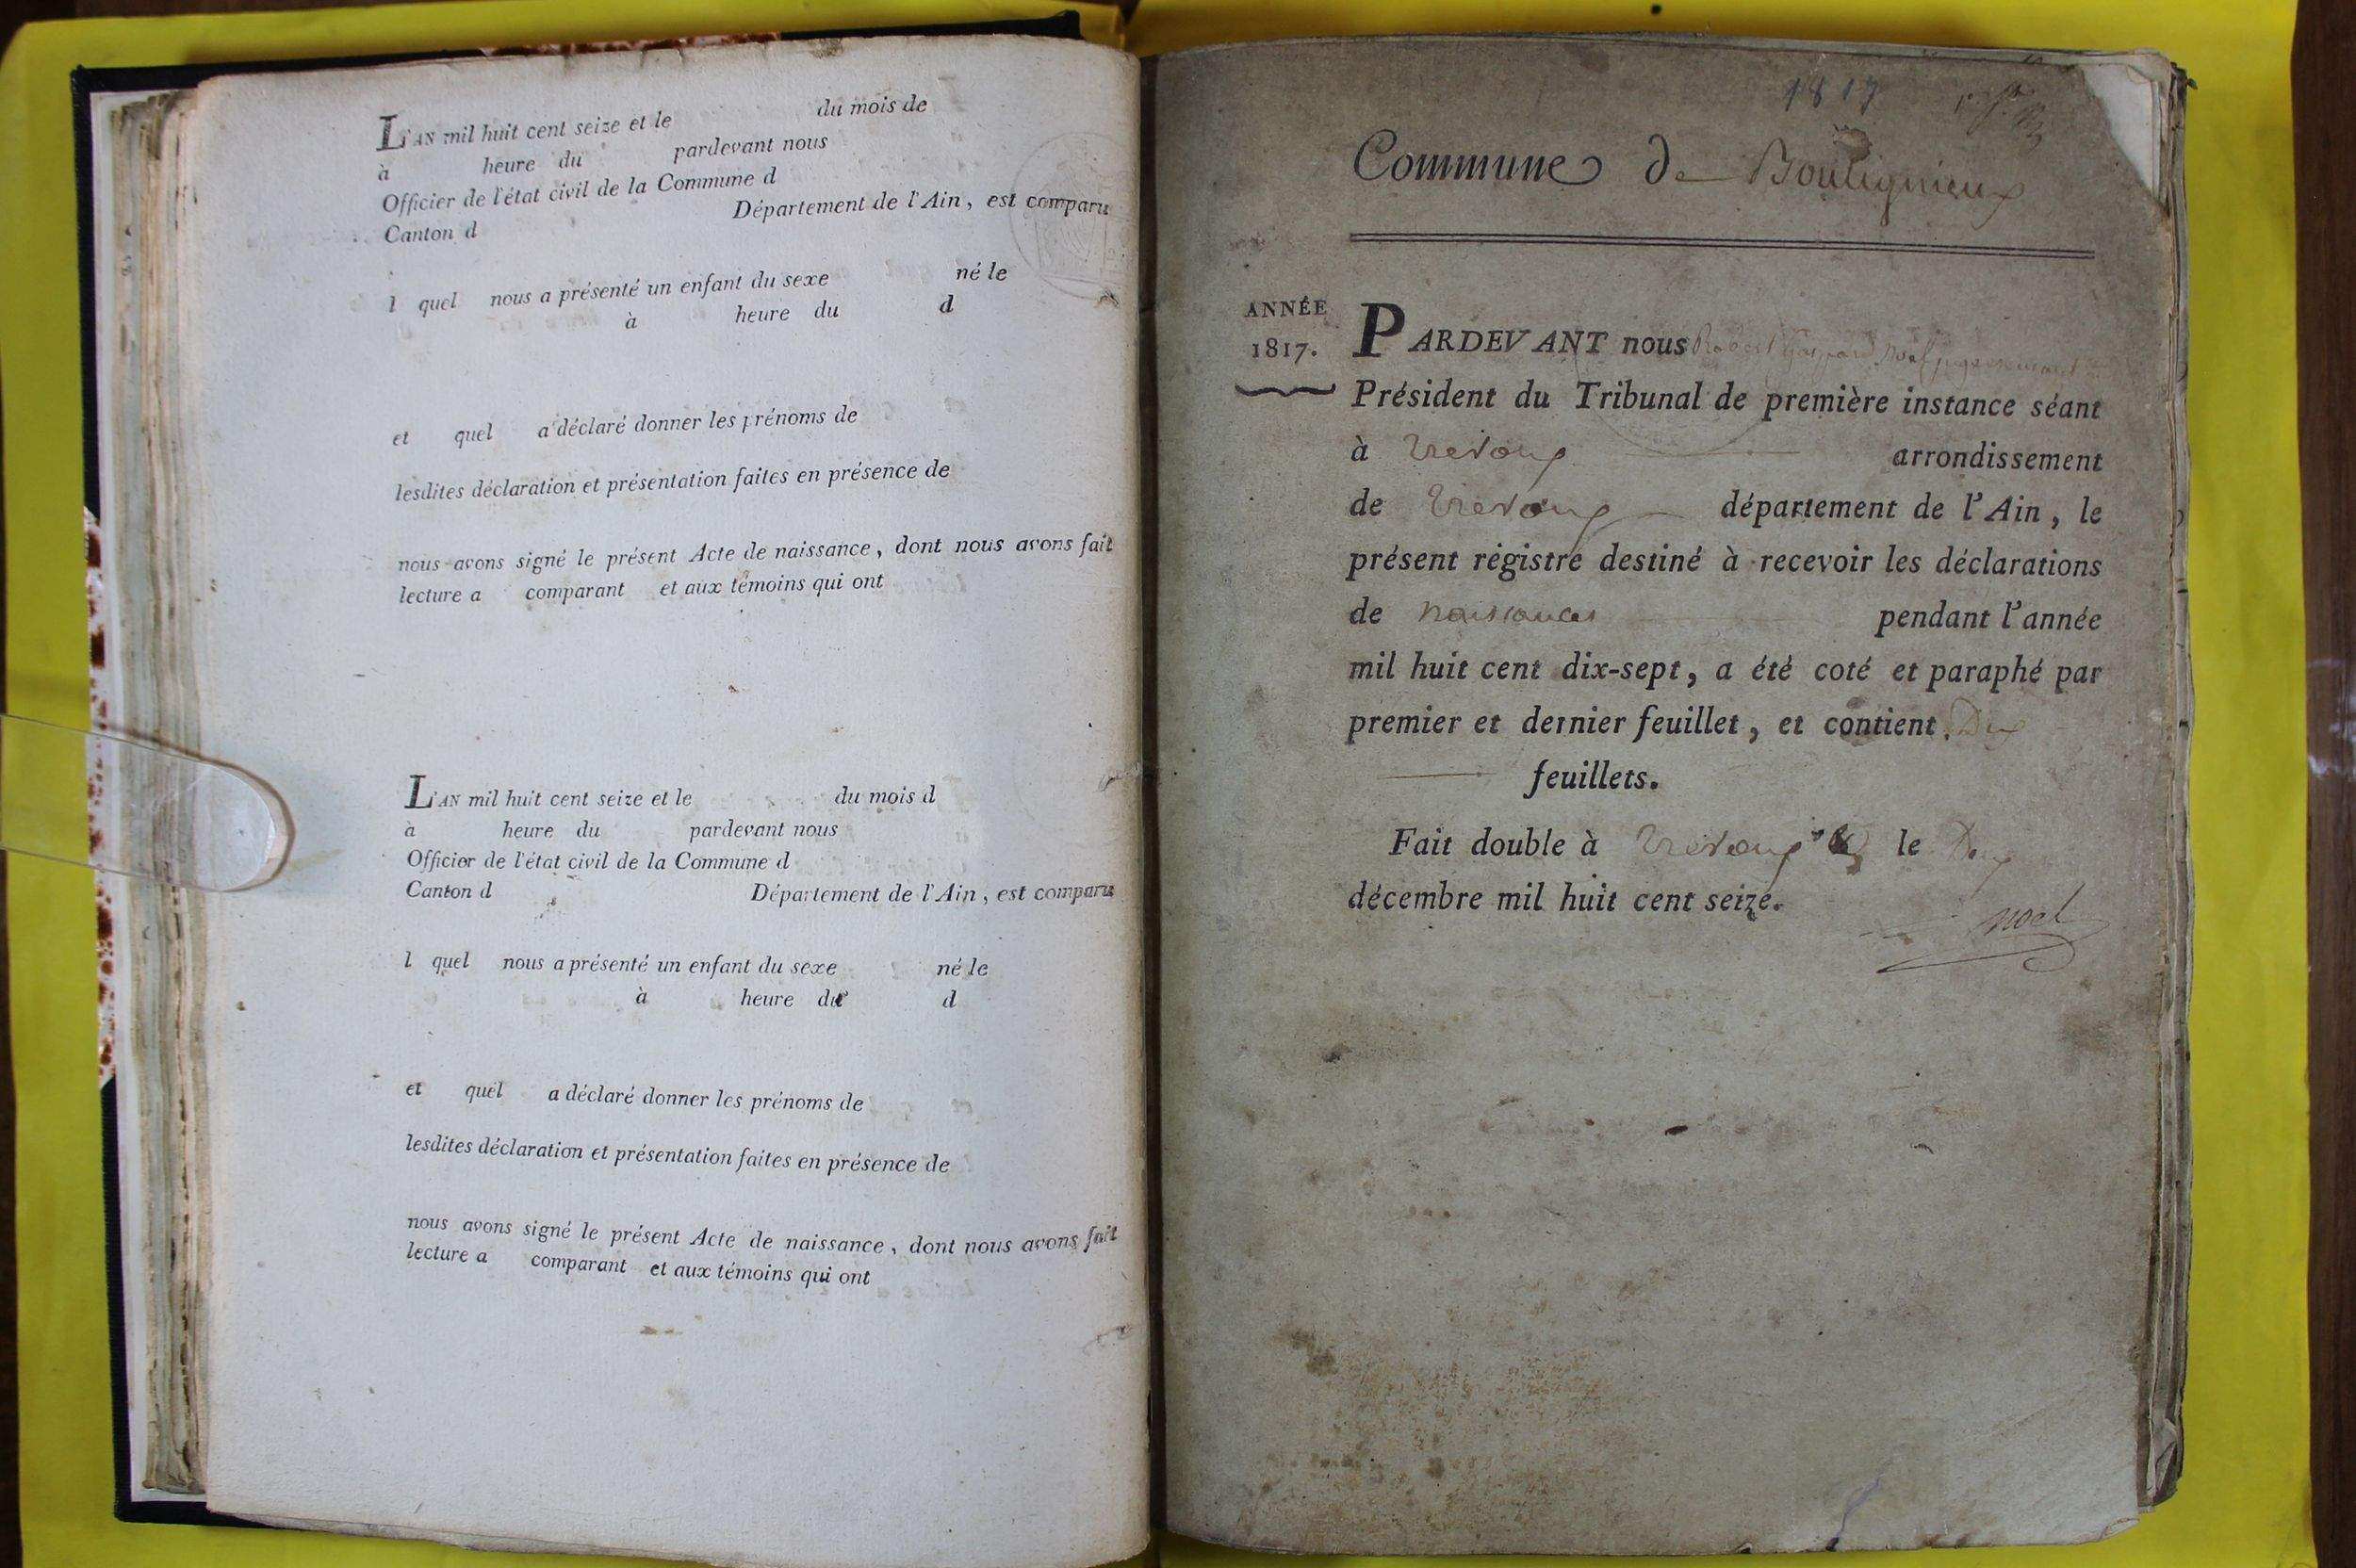 L'AN mil huit cent seize et le du mois de
à heure du pardevant nous
Officier de l'état civil de la Commune d
Canton d Département de l'Ain, est comparu
l quel nous a présenté un enfant du sexe né le
à heure du d
et quel a déclaré donner les prénoms de
lesdites déclaration et présentation faites en présence de
nous avons signé le présent Acte de naissance, dont nous avons fait
lecture a comparant et aux témoins qui ont
L'AN mil huit cent seize et le du mois d
à heure du pardevant nous
Officier de l'état civil de la Commune d
Canton d Département de l'Ain, est comparu
l quel nous a présenté un enfant du sexe né le
à heure du d
et quel a déclaré donner les prénoms de
lesdites déclaration et présentation faites en présence de
nous avons signé le présent Acte de naissance, dont nous avons fait
lecture a comparant et aux témoins qui ont
1817
Commune de Bouligneux
ANNÉE
1817.
PARDEVANT nous Robert Gaspard Noel
Président du Tribunal de première instance séant
à Trevoux arrondissement
de Trevoux département de l'Ain, le
présent régistre destiné à recevoir les déclarations
de naissances pendant l'année
mil huit cent dix-sept, a été coté et paraphé par
premier et dernier feuillet, et contient Dix
feuillets.
Fait double à Trevoux le
décembre mil huit cent seize.
Noel